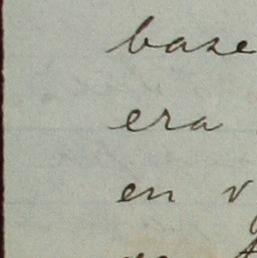 base
era
en v